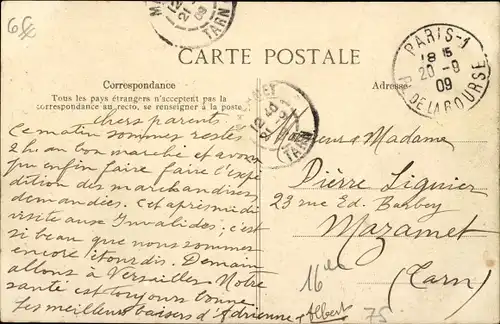 6 f
12 40
21
09
TARN
CARTE POSTALE
Correspondance
Tous les pays étrangers n'acceptent pas la
correspondance au recto, se renseigner à la poste
chers parents
Ce matin sommes restés
2 h. au bon marché et avons
pu enfin faire faire l'expé
dition des marchandises
demandées. Cet après midi
visite aux Invalides; c'est
si beau que nous sommes
encore étourdis. Demain
allons à Versailles. Notre
santé est toujours bonne
Les meilleurs baisers d'Adrienne, Albert
PARIS-1
18 15
20-8
09
PL. DE LA BOURSE
Adresse
12 40
21
TARN
Monsieur & Madame
Pièrre Liguier
23 rue Ed. Barbey
Mazamet
(Tarn)
16
75